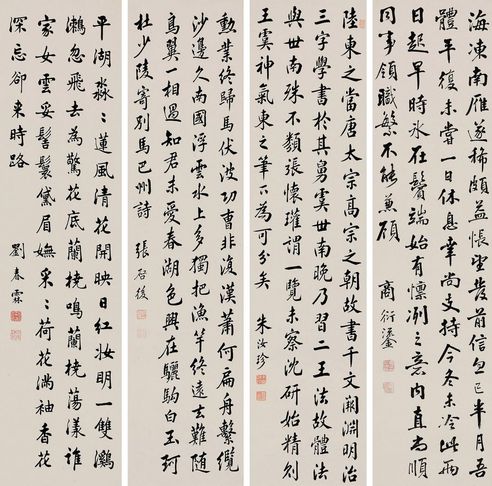 海凍南雁遂稀頗益悵望發前信已一月吾
體平復未嘗一日休息幸尚支持今冬未冷此兩
日起早時冰在鬢端始有懍冽之意內直尚順
同事領職繁不能兼顧 商衍鎏
陸柬之當唐太宗高宗之朝故書千文闕淵明治
三字學書於其舅虞世南晚乃習二王法故體法
與世南殊不類張懷瓘謂一覽未察沈研始精則
王虞神氣柬之筆下為可分矣 朱汝珍
勳業終歸馬伏波功曹非復漢蕭何扁舟繫纜
沙邊久南國浮雲水上多獨把漁竿終遠去難隨
鳥翼一相過知君未愛春湖色興在驪駒白玉珂
杜少陵寄別馬巴州詩 張啓後
平湖淼〻蓮風清花開映日紅妝明一雙鸂
鶒忽飛去為驚花底蘭橈鳴蘭橈蕩漾誰
家女雲妥髻鬟黛眉嫵采〻荷花滿袖香花
深忘卻來時路 劉春霖